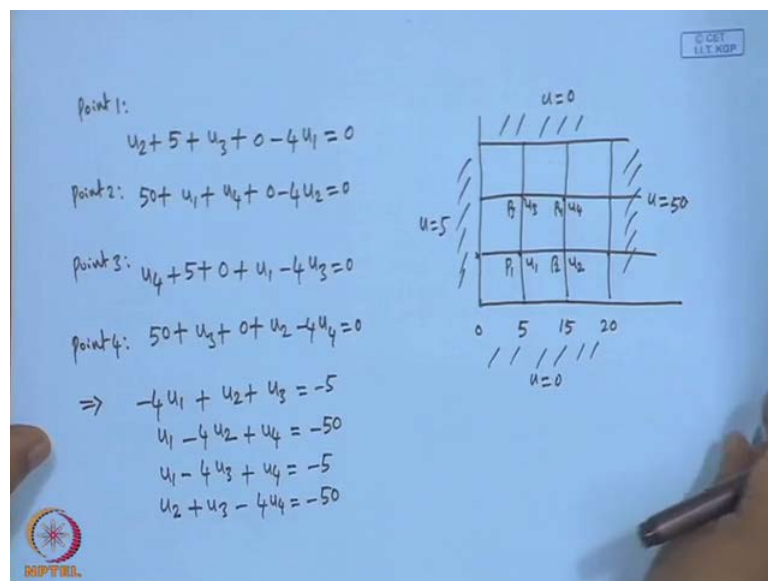 © CET
I.I.T. KGP
Point 1:
u₂ + 5 + u₃ + 0 - 4u₁ = 0
Point 2: 50 + u₁ + u₄ + 0 - 4u₂ = 0
Point 3: u₄ + 5 + 0 + u₁ - 4u₃ = 0
Point 4: 50 + u₃ + 0 + u₂ - 4u₄ = 0
⇒ -4u₁ + u₂ + u₃ = -5
u₁ - 4u₂ + u₄ = -50
u₁ - 4u₃ + u₄ = -5
u₂ + u₃ - 4u₄ = -50
u=0
u=5
u=50
P₃ u₃ P₄ u₄
P₁ u₁ P₂ u₂
0 5 15 20
u=0
NPTEL